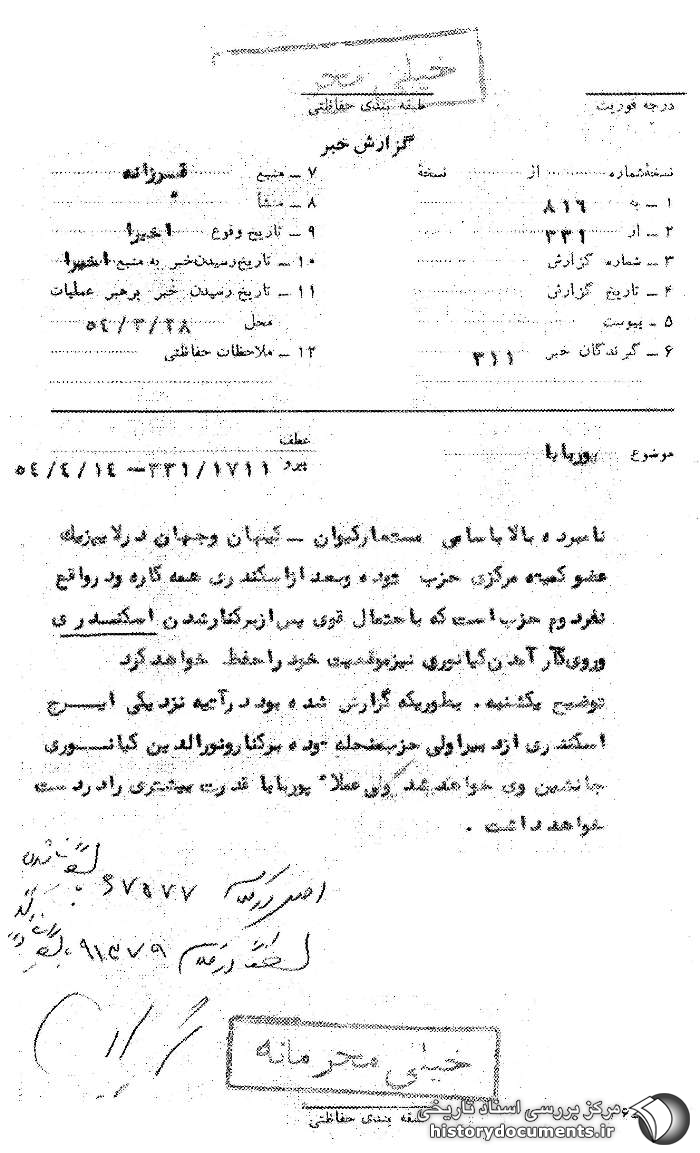 خیلی محر
طبقه بندی حفاظتی
درجه فوریت
گزارش خبر
نسخهٔ شماره از نسخهٔ
۱ ــ به ۸۱۶
۲ ــ از ۳۳۱
۳ ــ شماره گزارش
۴ ــ تاریخ گزارش
۵ ــ پیوست
۶ ــ گیرندگان خبر ۳۱۱
۷ ــ منبع فرزانه
۸ ــ منشأ
۹ ــ تاریخ وقوع اخیرا
۱۰ ــ تاریخ رسیدن خبر به منبع اخیرا
۱۱ ــ تاریخ رسیدن خبر برهبر عملیات
محل ۵٤/۳/۲۸
۱۲ ــ ملاحظات حفاظتی
موضوع پوربابا
عطف
پیرو ۳۳۱/۱۷۱۱ – ۵٤/٤/۱٤
نامبرده بالا باسامی مستعار کیوان ــ کیهان و جهان در لایپزیک
عضو کمیته مرکزی حزب توده و بعد از اسکندری همه کاره و در واقع
نفر دوم حزب است که با حتمال قوی پس از برکنار شدن اسکندری
و روی کار آمدن کیانوری نیز موقعیت خود را حفظ خواهد کرد
توضیح یکشنبه . بطوریکه گزارش شده بود در آتیه نزدیکی ایرج
اسکندری از دبیر اولی حزب منحله توده برکنار و نورالدین کیانوری
جانشین وی خواهد شد ولی عملا" پوربابا قدرت بیشتری را در دست
خواهد داشت .
اصل در پرونده ۶۷۵۷۷
در پرونده ۹۱۴۷۹
خیلی محرمانه
طبقه بندی حفاظتی
مرکز بررسی اسناد تاریخی
historydocuments.ir